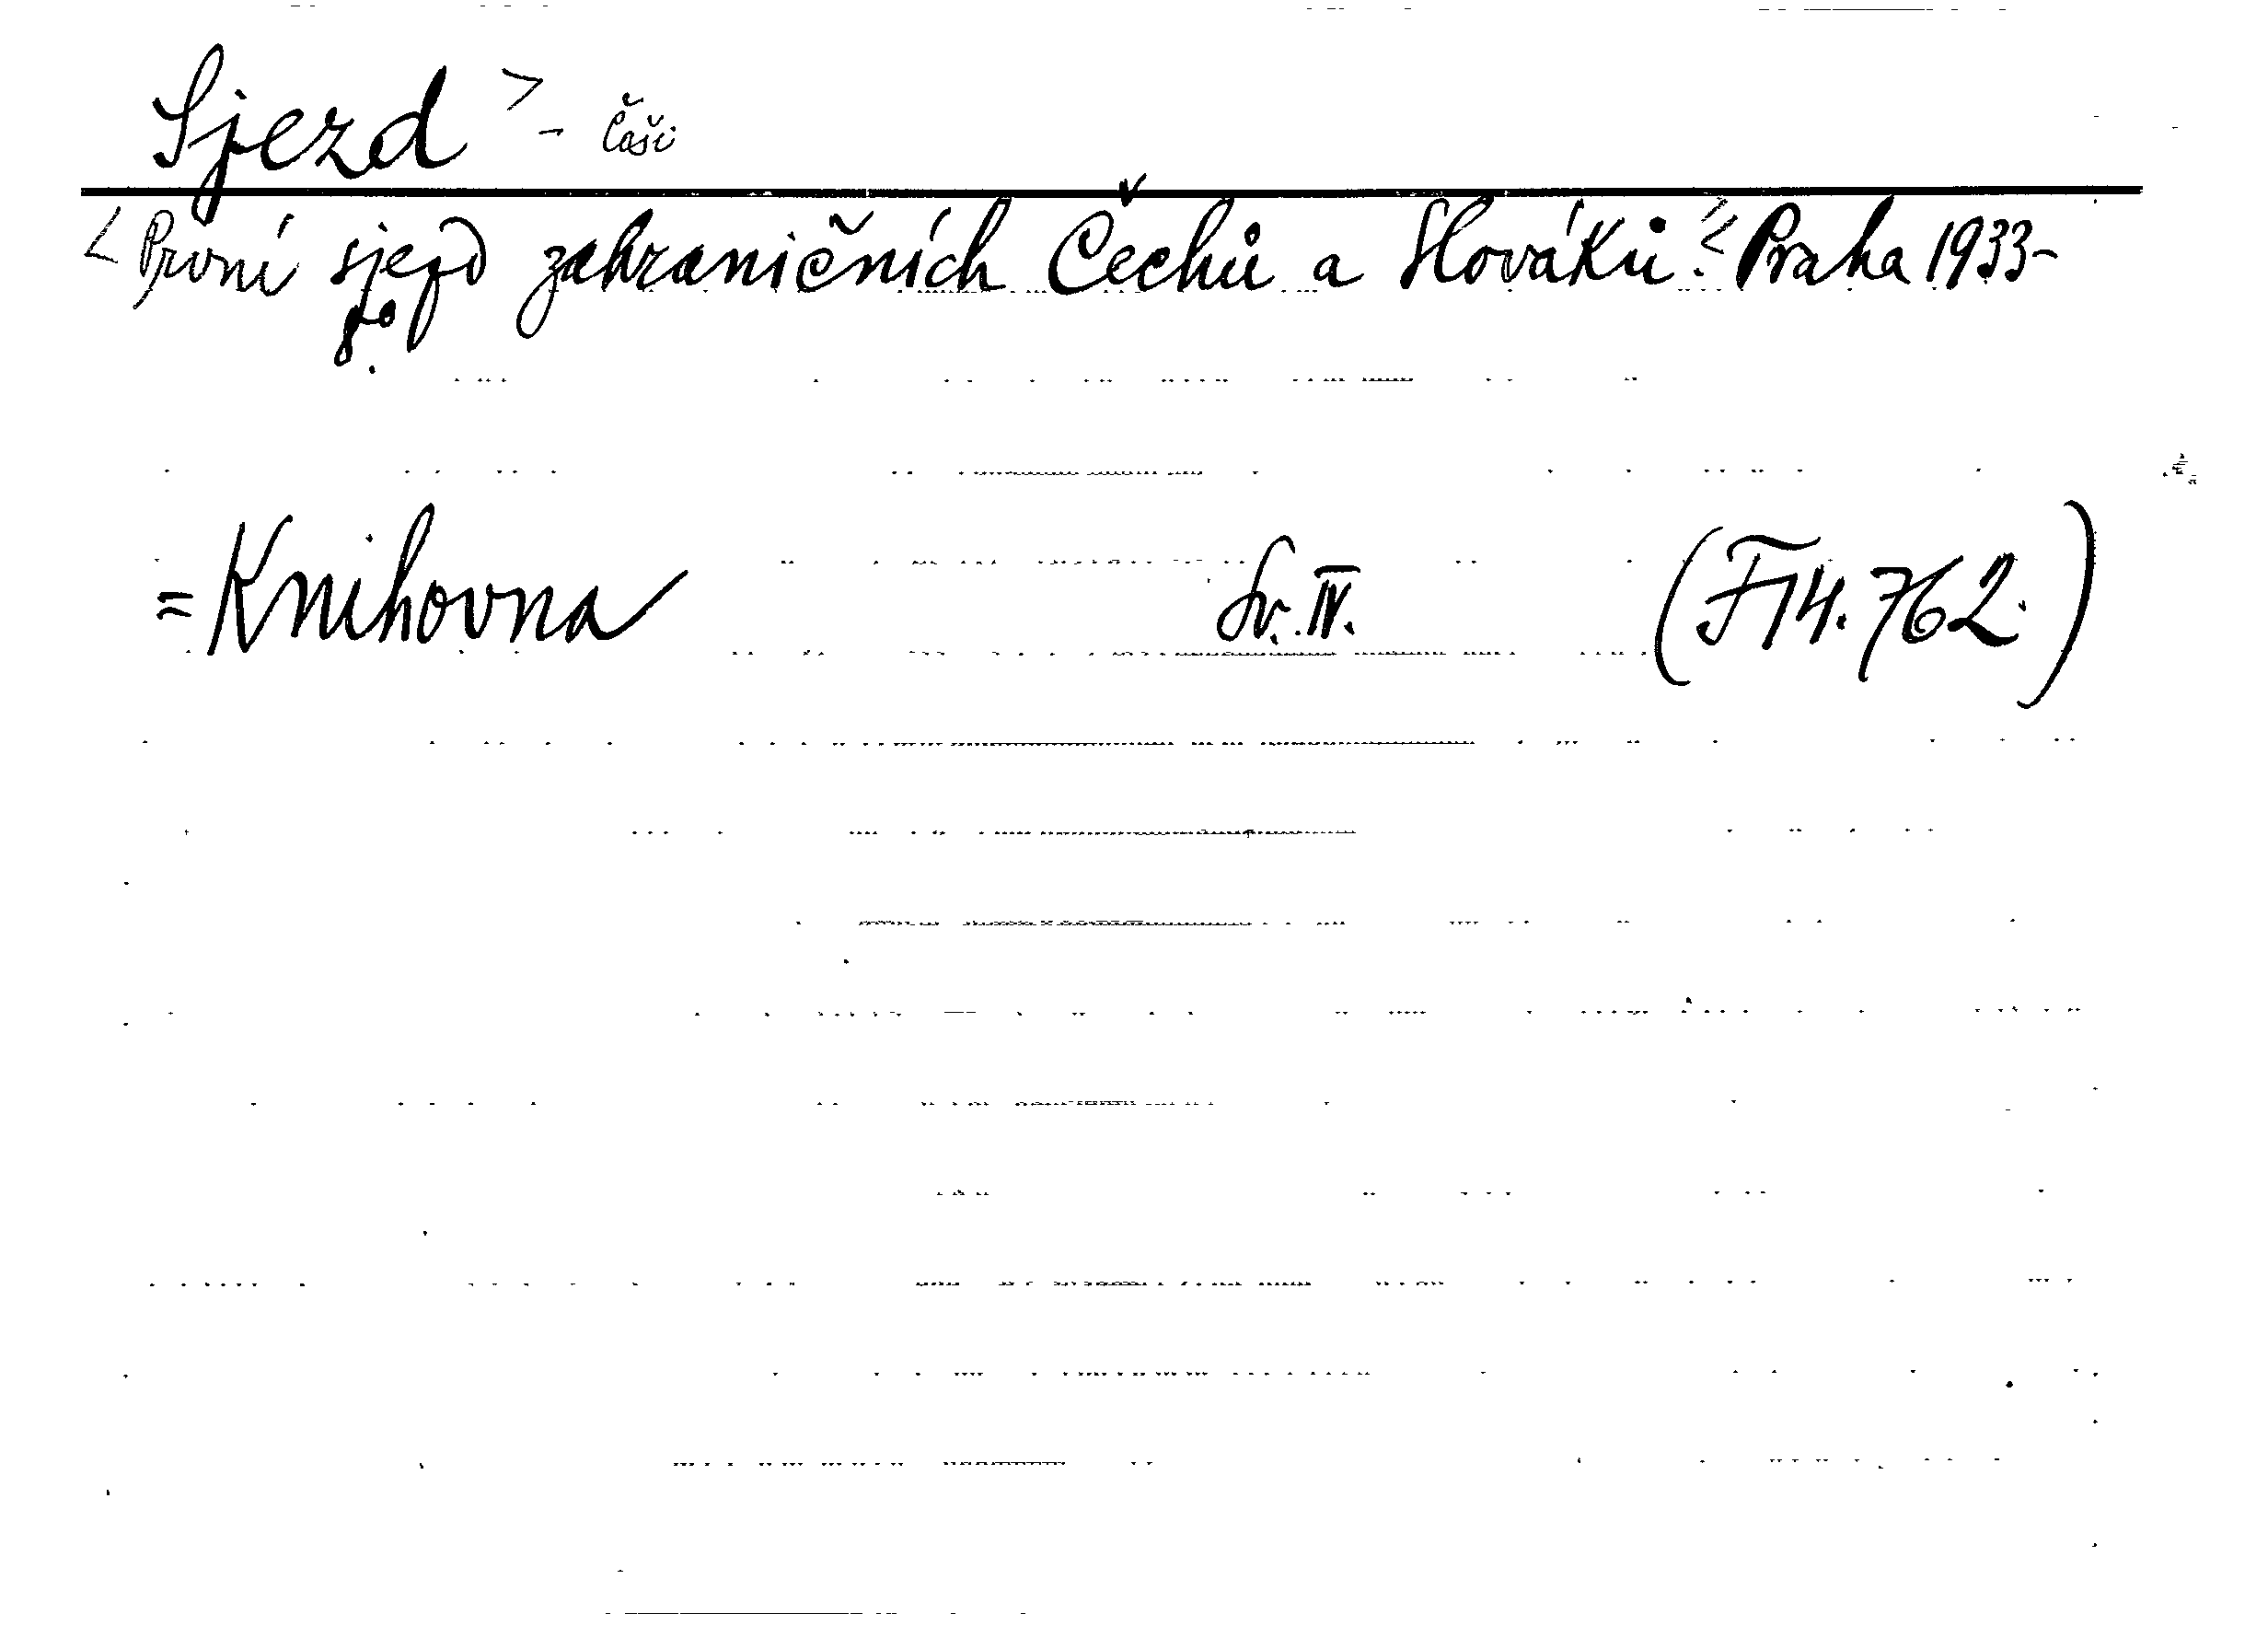 Sjezd > - Čaši
< První sjezd zahraničních Čechů a Slováků. < Praha 1933-
8°.
= Knihovna Sv. IV. (F14.762.)